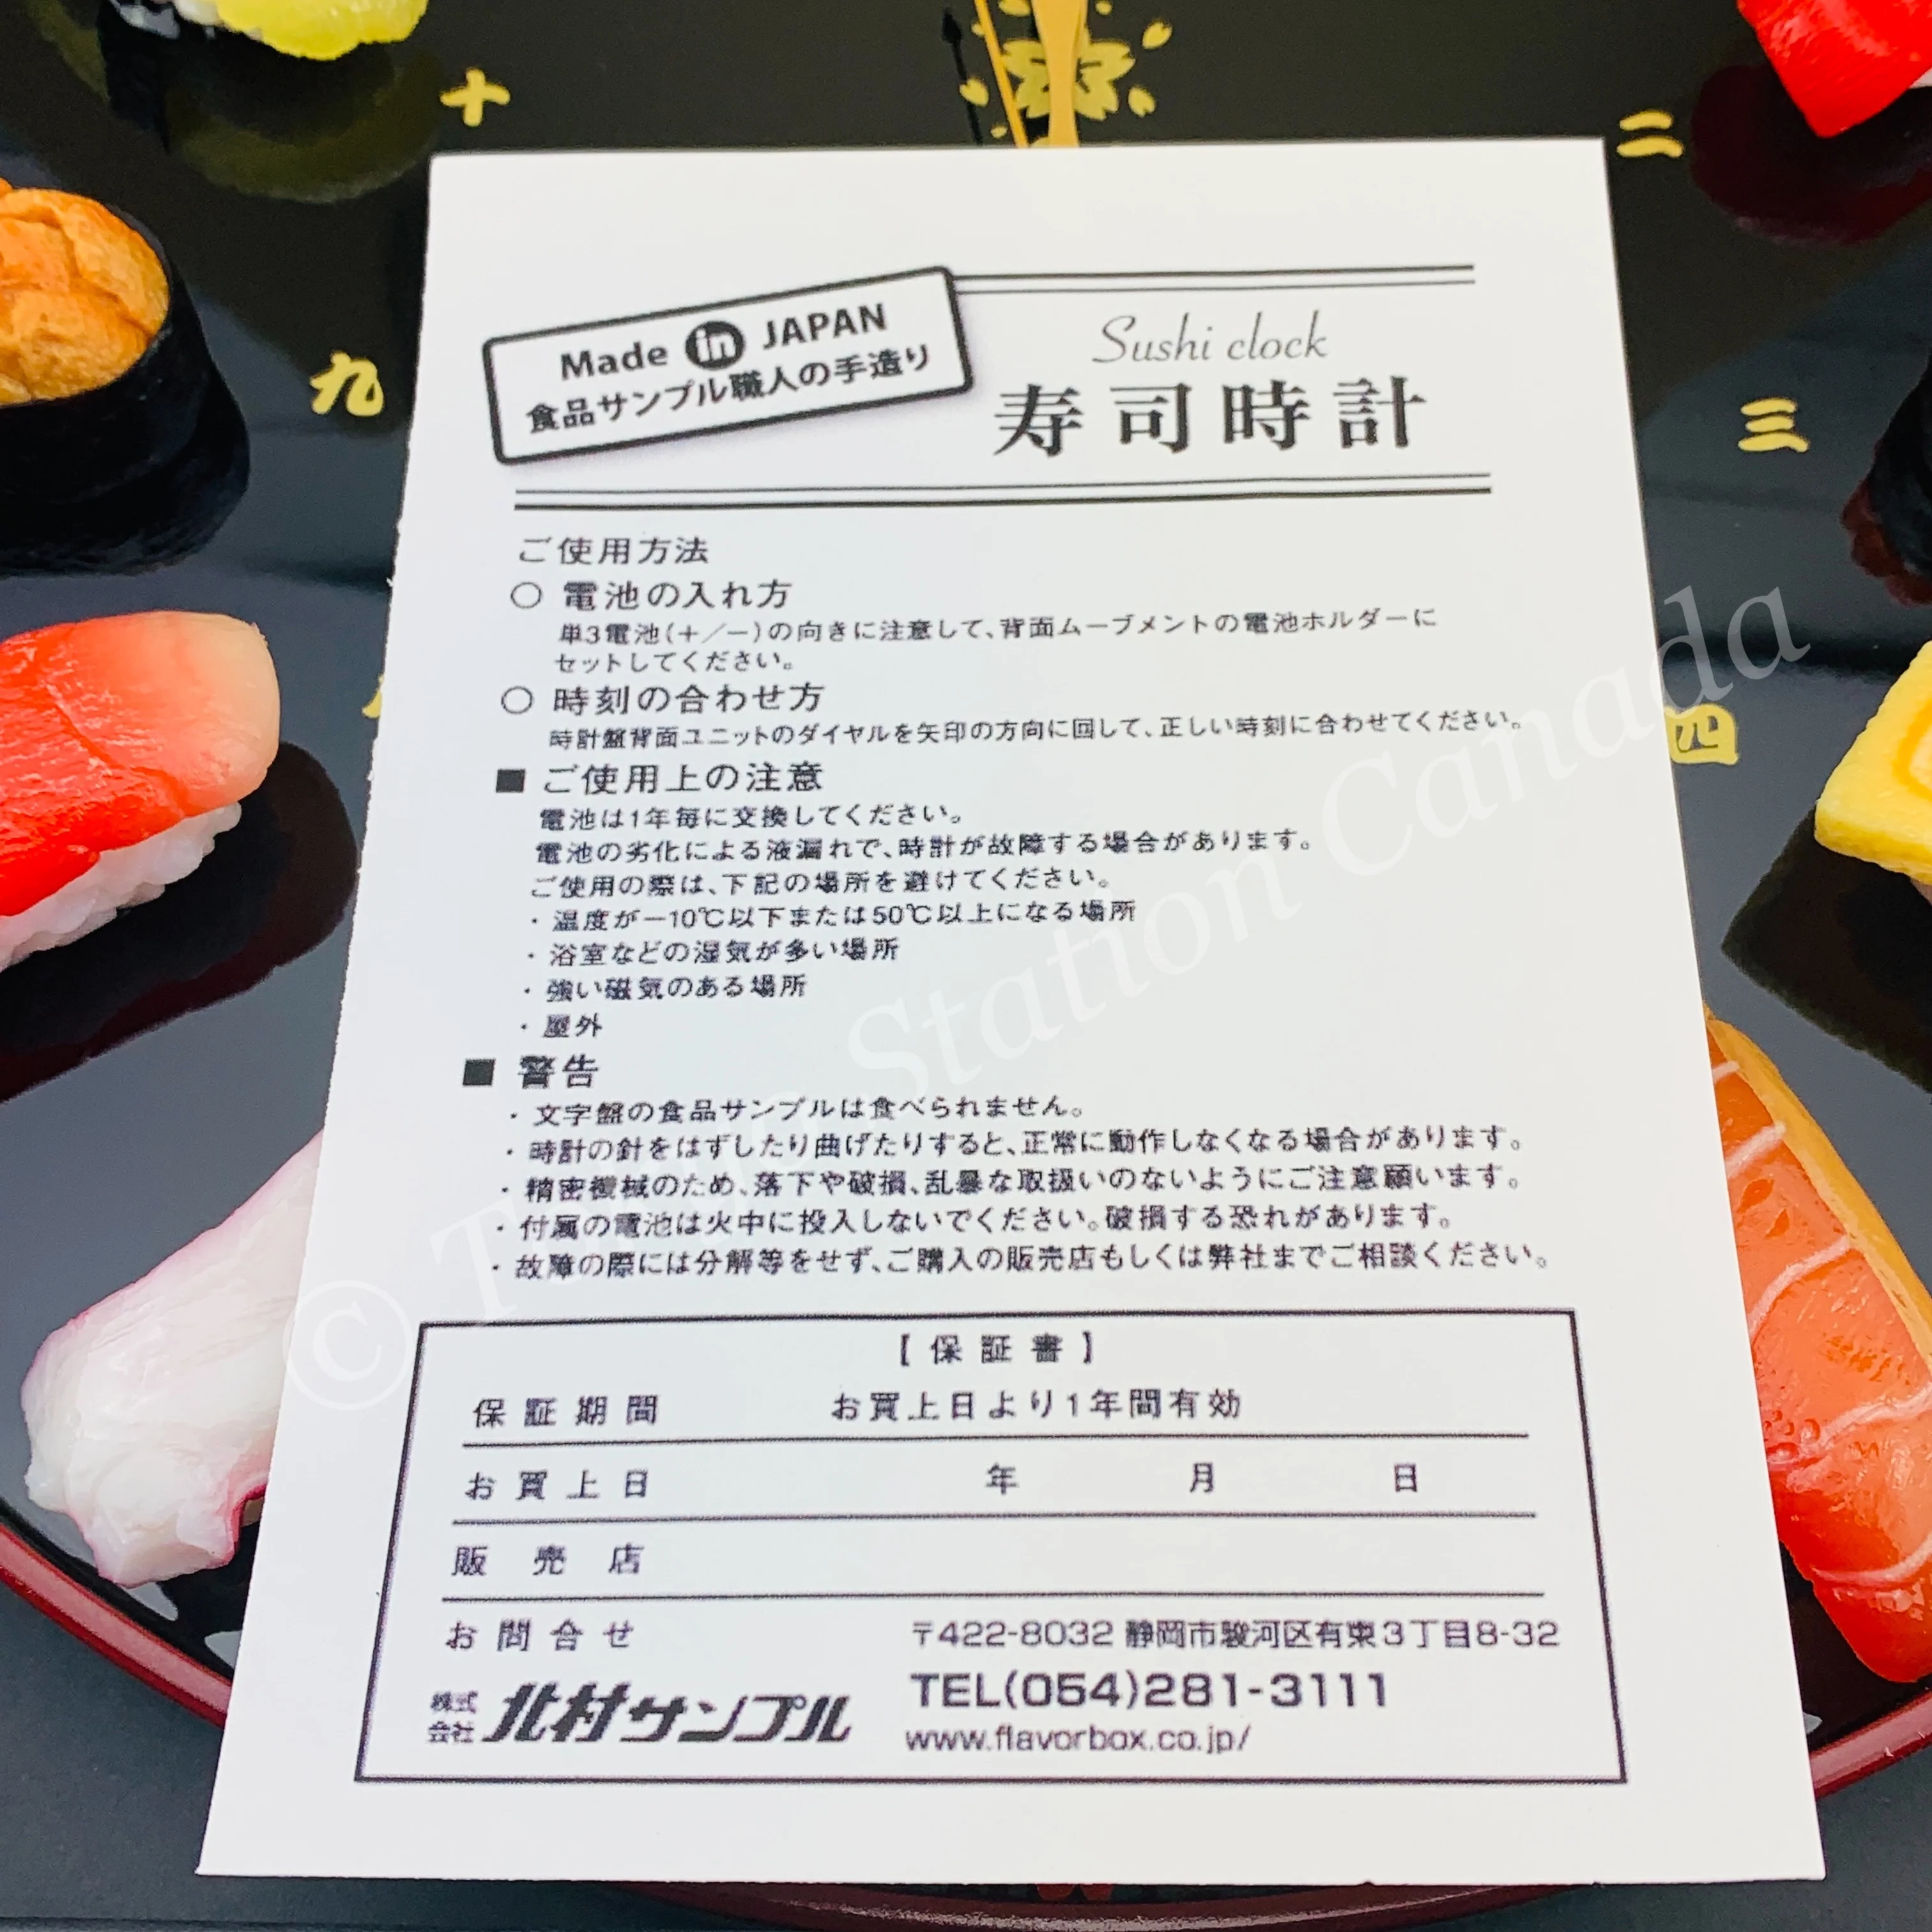 十
二
九
三
四
Made in JAPAN
食品サンプル職人の手造り
Sushi clock
寿司時計
ご使用方法
○ 電池の入れ方
単3電池(+/−)の向きに注意して、背面ムーブメントの電池ホルダーに
セットしてください。
○ 時刻の合わせ方
時計盤背面ユニットのダイヤルを矢印の方向に回して、正しい時刻に合わせてください。
■ ご使用上の注意
電池は1年毎に交換してください。
電池の劣化による液漏れで、時計が故障する場合があります。
ご使用の際は、下記の場所を避けてください。
・温度が−10℃以下または50℃以上になる場所
・浴室などの湿気が多い場所
・強い磁気のある場所
・屋外
■ 警告
・文字盤の食品サンプルは食べられません。
・時計の針をはずしたり曲げたりすると、正常に動作しなくなる場合があります。
・精密機械のため、落下や破損、乱暴な取扱いのないようにご注意願います。
・付属の電池は火中に投入しないでください。破損する恐れがあります。
・故障の際には分解等をせず、ご購入の販売店もしくは弊社までご相談ください。
【保証書】
保証期間 お買上日より1年間有効
お買上日 年 月 日
販売店
お問合せ 〒422-8032 静岡市駿河区有東3丁目8-32
株式会社 北村サンプル TEL(054)281-3111
www.flavorbox.co.jp/
© Station Canada